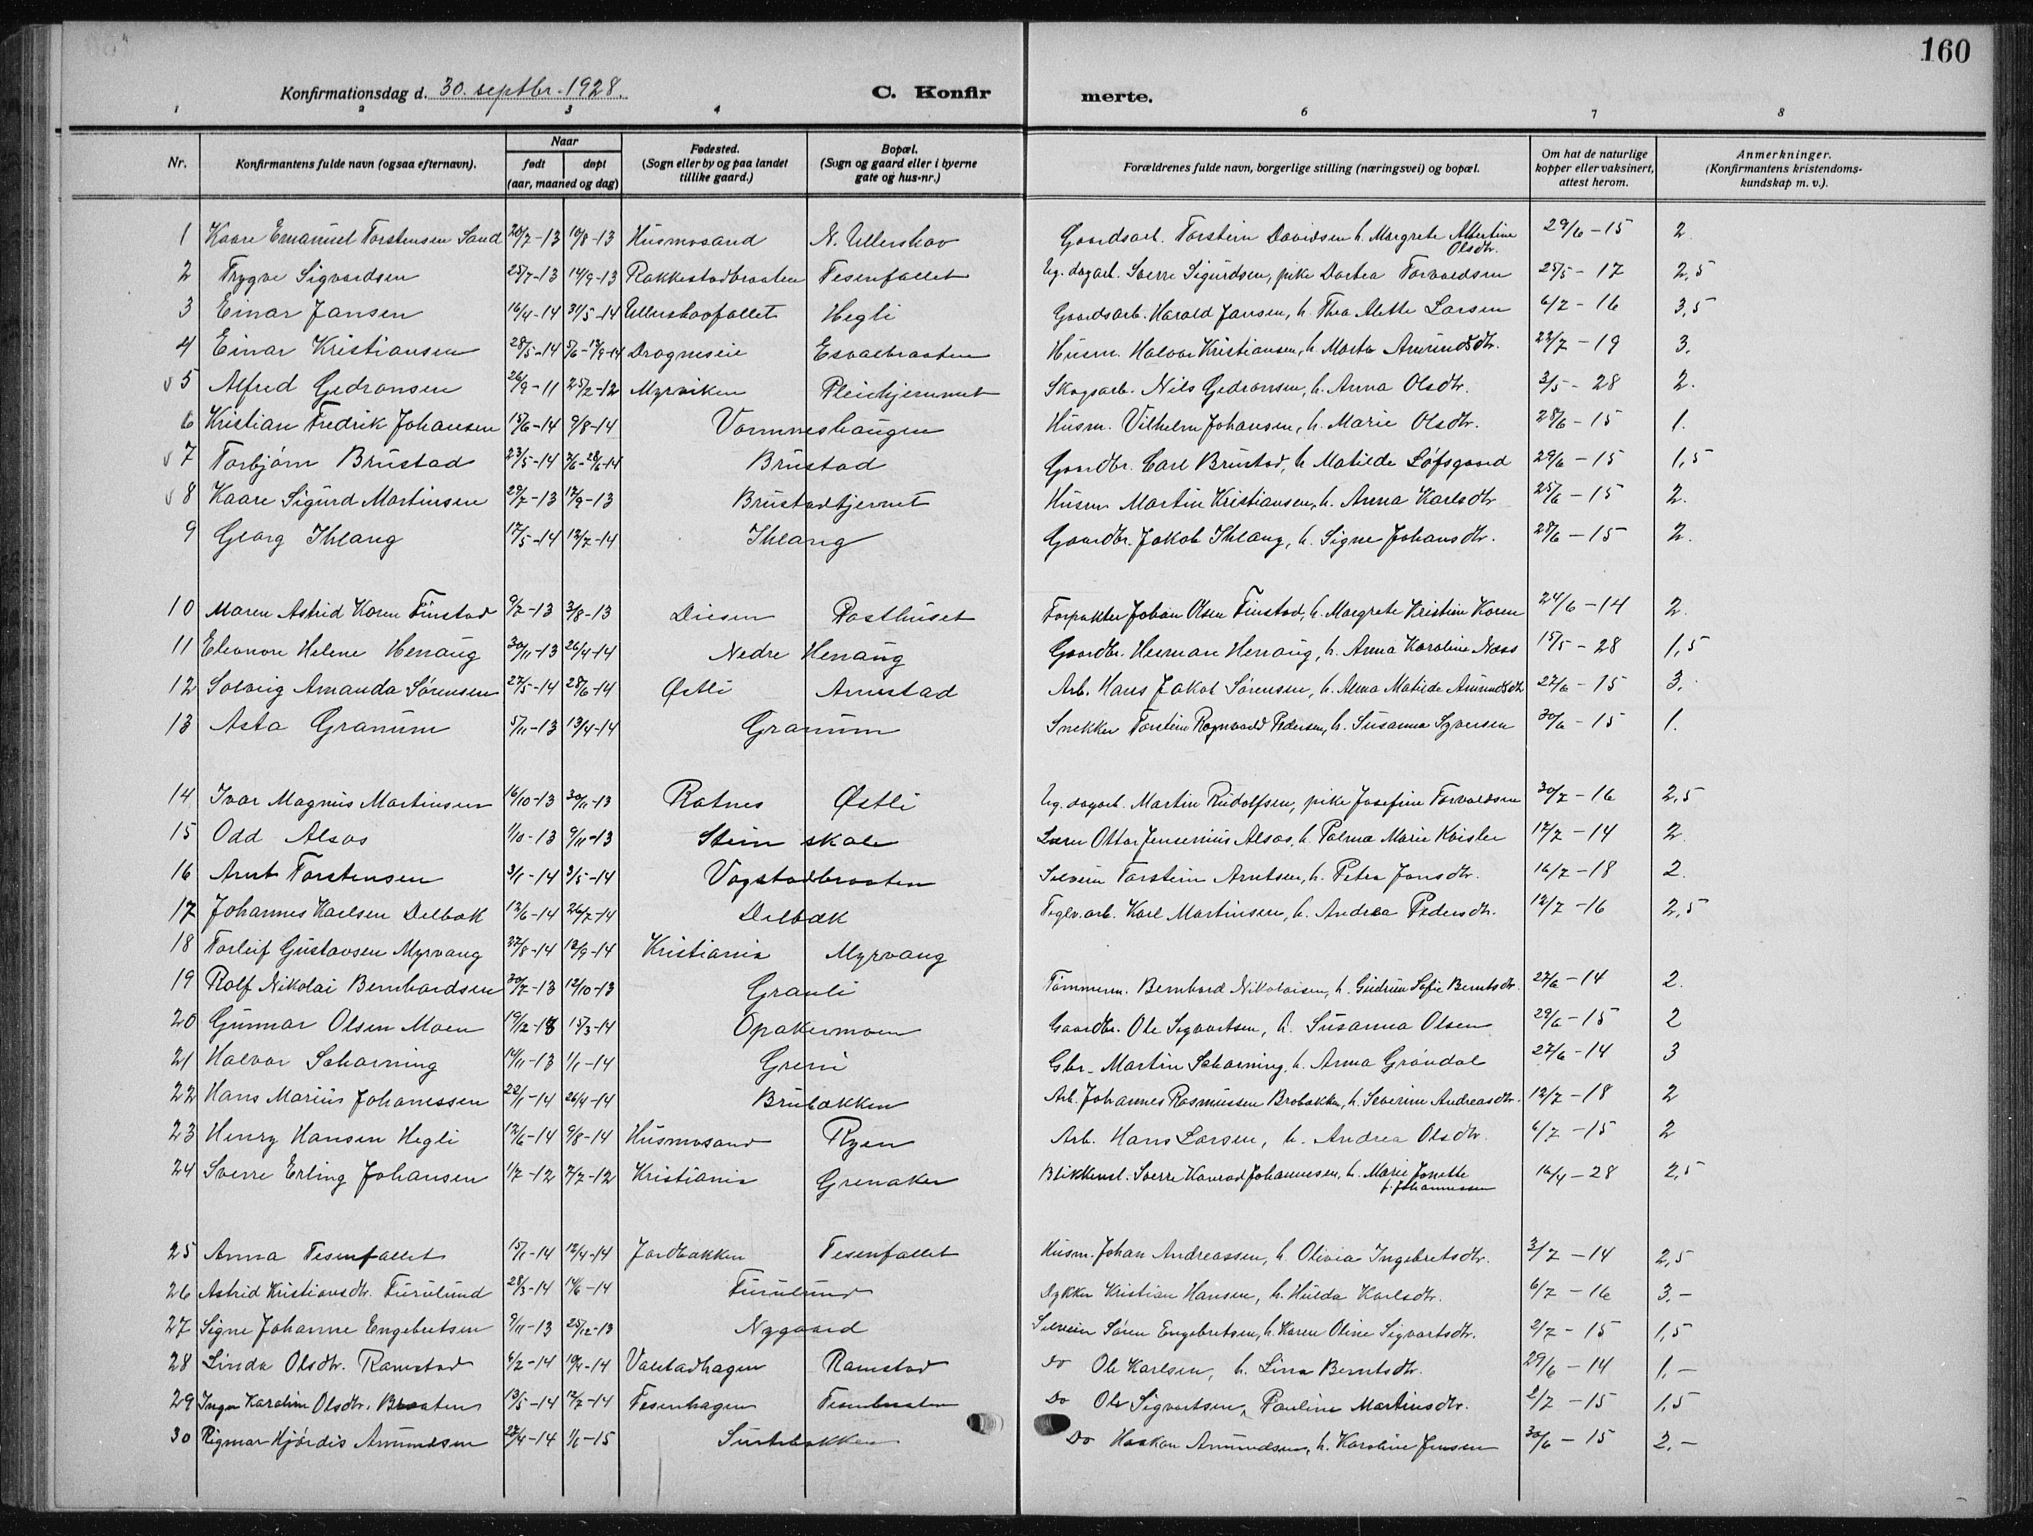 160
Konfirmationsdag d. 30. septbr. 1928.
C. Konfir
merte.
1 2 3 4 6 7 8
Nr. Konfirmantens fulde navn (ogsaa efternavn). Naar født døpt (aar, maaned og dag) Fødested. (Sogn eller by og paa landet tillike gaard.) Bopæl. (Sogn og gaard eller i byerne gate og hus-nr.) Forældrenes fulde navn, borgerlige stilling (næringsvei) og bopæl. Om hat de naturlige kopper eller vaksinert, attest herom. Anmerkninger. (Konfirmantens kristendomskundskap m. v.).
1 Kaare Emanuel Torstensen Sand 20/7-13 10/8-13 Husmosand N. Ullershov Gaardsarb. Torstein Davidsen h. Margrete Albertine Olsdtr. 29/6-15 2.
2 Trygve Sigvardsen 25/7-13 14/9-13 Rakkestadbraaten Tesenfallet Ug. dagarb. Sverre Sigurdsen, pike Dortea Torvaldsen 25/5-17 2,5
3 Einar Jansen 16/4-14 31/5-14 Ullershovfallet Hegli Gaardsarb. Harald Jansen, h. Thea Alette Larsen 6/7-16 3,5
4 Einar Kristiansen 28/5-14 5/6-13/9-14 Dragneseie Esvalbraaten Husm. Halvor Kristiansen, h. Marta Amundsdtr. 22/7-19 3.
5 Alfred Gedransen 26/9-11 25/2-12 Myrviken Pleiehjemmet Skogsarb. Nils Gedransen, h. Anna Olsdtr. 3/5-28 2.
6 Kristian Fredrik Johansen 15/6-14 9/8-14 Vormneshaugen Husm. Vilhelm Johansen, h. Marie Olsdtr. 28/6-15 1.
7 Torbjørn Brustad 23/5-14 2/6-28/6-14 Brustad Gaardbr. Carl Brustad, h. Matilde Løfsgaard 29/6-15 1,5
8 Kaare Sigurd Martinsen 29/7-13 12/9-13 Brustadtjernet Husm. Martin Kristiansen, h. Anna Karlsdtr 25/6-15 2.
9 Georg Ihlang 17/5-14 12/7-14 Ihlang Gaardbr. Jakob Ihlang, h. Signe Johansdtr. 28/6-15 2.
10 Maren Astrid Koren Finstad 9/7-13 3/8-13 Disen Posthuset Forpakter Johan Olsen Finstad, h. Margrete Kristine Koren 24/6-14 2.
11 Eleonore Helene Henaug 30/11-13 26/4-14 Nedre Henaug Gaardbr. Herman Henaug, h. Anna Karoline Næss 15/5-28 1,5
12 Solveig Amanda Sørensen 27/5-14 28/6-14 Østli Arnestad Arb. Hans Jakob Sørensen, h. Alma Matilde Amundsdtr 27/6-15 3.
13 Asta Granum 5/11-13 13/4-14 Granum Snekker Torstein Ragnvald Pedersen, h. Susanna Syversen 30/6-15 1.
14 Ivar Magnus Martinsen 16/10-13 30/11-13 Ratnes Østli Ug. dagarb. Martin Rudolfsen, pike Josefine Torvaldsen 30/7-16 2,5
15 Odd Alsos 1/10-13 9/11-13 Stein skole Lærer Ottar Jensenius Alsos, h. Palma Marie Kvisler 17/7-14 2.
16 Arnt Torstensen 3/1-14 3/5-14 Vogstadbraaten Selveier Torstein Arntsen, h. Petra Jonsdtr. 16/7-18 2.
17 Johannes Karlsen Delbæk 13/6-14 26/7-14 Delbæk Teglv.arb. Karl Martinsen, h. Andrea Pedersdtr. 12/7-16 2,5
18 Torleif Gustavsen Myrvang 27/8-14 12/9-14 Kristiania Myrvang
19 Rolf Nikolai Bernhardsen 30/7-13 12/10-13 Granli Tømmerm. Bernhard Nikolaisen, h. Gudrun Sofie Berntsdtr. 27/6-14 2.
20 Gunnar Olsen Moen 19/12-13 15/3-14 Opakermoen Gaardbr. Ole Sigvartsen, h. Susanna Olsen 29/6-15 2
21 Halvor Scharning 14/11-13 1/1-14 Greni Gbr. Martin Scharning, h. Anna Grøndal 27/6-14 3
22 Hans Marius Johannssen 22/1-14 26/4-14 Brubakken Arb. Johannes Rasmussen Brobakken, h. Severine Andreasdtr. 12/7-18 2
23 Henry Hansen Hegli 12/6-14 9/8-14 Husmosand Ryen Arb. Hans Larsen, h. Andrea Olsdtr. 6/7-15 2
24 Sverre Erling Johansen 1/7-12 7/7-12 Kristiania Grenaker Blikkensl. Sverre Konrad Johannesen, h. Marie Jonette f. Johannessen 16/4-28 2,5
25 Anna Tesenfallet 15/1-14 12/4-14 Jordbakken Tesenfallet Husm. Johan Andreassen, h. Olivia Ingebretsdtr. 3/7-14 2,5
26 Astrid Kristiansdtr. Furulund 28/3-14 14/6-14 Furulund Dykker Kristian Hansen, h. Hulda Karlsdtr. 6/7-16 3.-
27 Signe Johanne Engebretsen 9/11-13 25/12-13 Nygaard Selveier Søren Engebretsen, h. Karen Oline Sigvartsdtr. 2/7-15 1,5
28 Linda Olsdtr. Ramstad 6/2-14 19/4-14 Valstadhagen Ramstad do Ole Karlsen, h. Lina Berntsdtr. 29/6-14 1.-
29 Inga Karoline Olsdtr. Braaten 13/5-14 12/7-14 Tesenhagen Tesenbraaten Do Ole Sigvartsen, Pauline Martinsdtr. 2/7-15 1,5
30 Rigmor Hjørdis Amundsen 28/4-14 1/6-15 Do Haakon Amundsen, h. Karoline Jensen 30/6-15 2.-